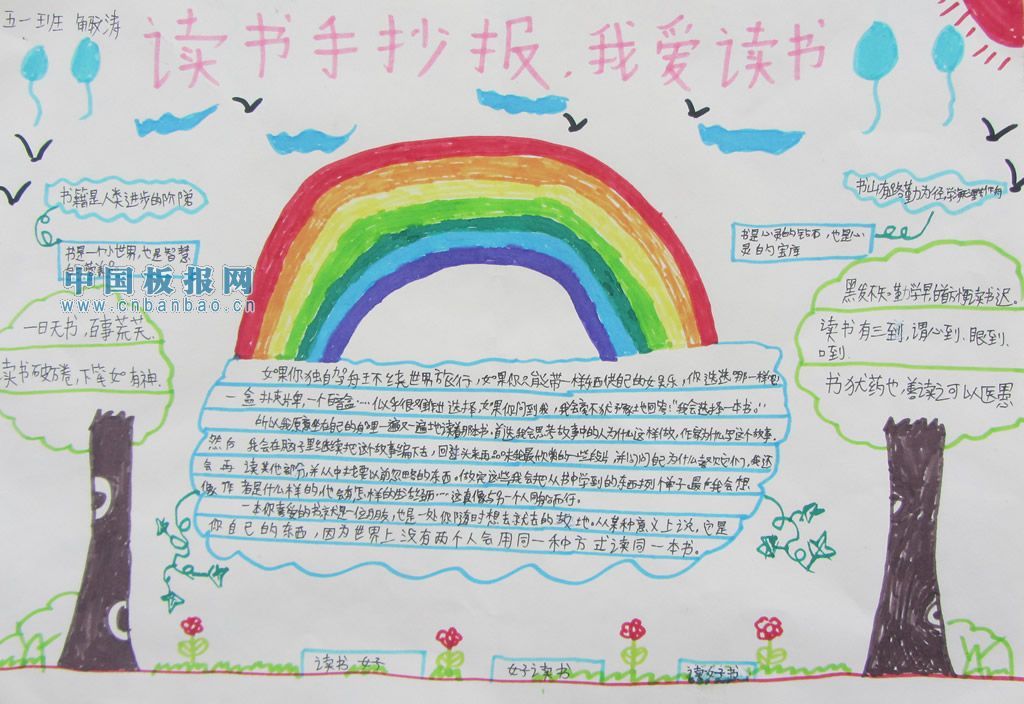 五一班
读书手抄报，我爱读书
书籍是人类进步的阶梯
书是一个小世界，也是智慧
中国板报网
www.cnbanbao.cn
一日无书，百事荒芜。
读书破万卷，下笔如有神。
书山有路勤为径学海
书是心灵的钻石，也是心
灵的宝库
黑发不知勤学早白首方悔读书迟。
读书有三到，谓心到、眼到、
口到.
书犹药也，善读之可以医愚
如果你独自驾舟环绕世界旅行，如果你只能带一样东西供自己的娱乐，你选选哪一样
一盒扑克牌，一个百音盒……似乎很难作出选择，如果你问到我，我会毫不犹豫地回答：“我会选择一本书。”
所以我愿意坐在自己的角里一遍又一遍地读着那本书.首选我会思考故事中的人为什么这样做，作家为什么写这个故事.
然后我会在脑子里继续把这个故事编下去，回过头来再品味我最欣赏的一些段，并问问自己为什么喜欢它们，我还
会再读其他部分，并从中找要以前忽略的东西。做完这些我会把从书中学到的东西列个单子.最后我会想
像作者是什么样的，他会有怎样的生活经历……这真像与另一个人同船而行。
一本你喜爱的书就是一位朋友，也是一处你随时想去就去的故地。从某种意义上说，它是
你自己的东西，因为世界上没有两个人会用同一种方式读同一本书。
读书 女子
女子读书
读好书